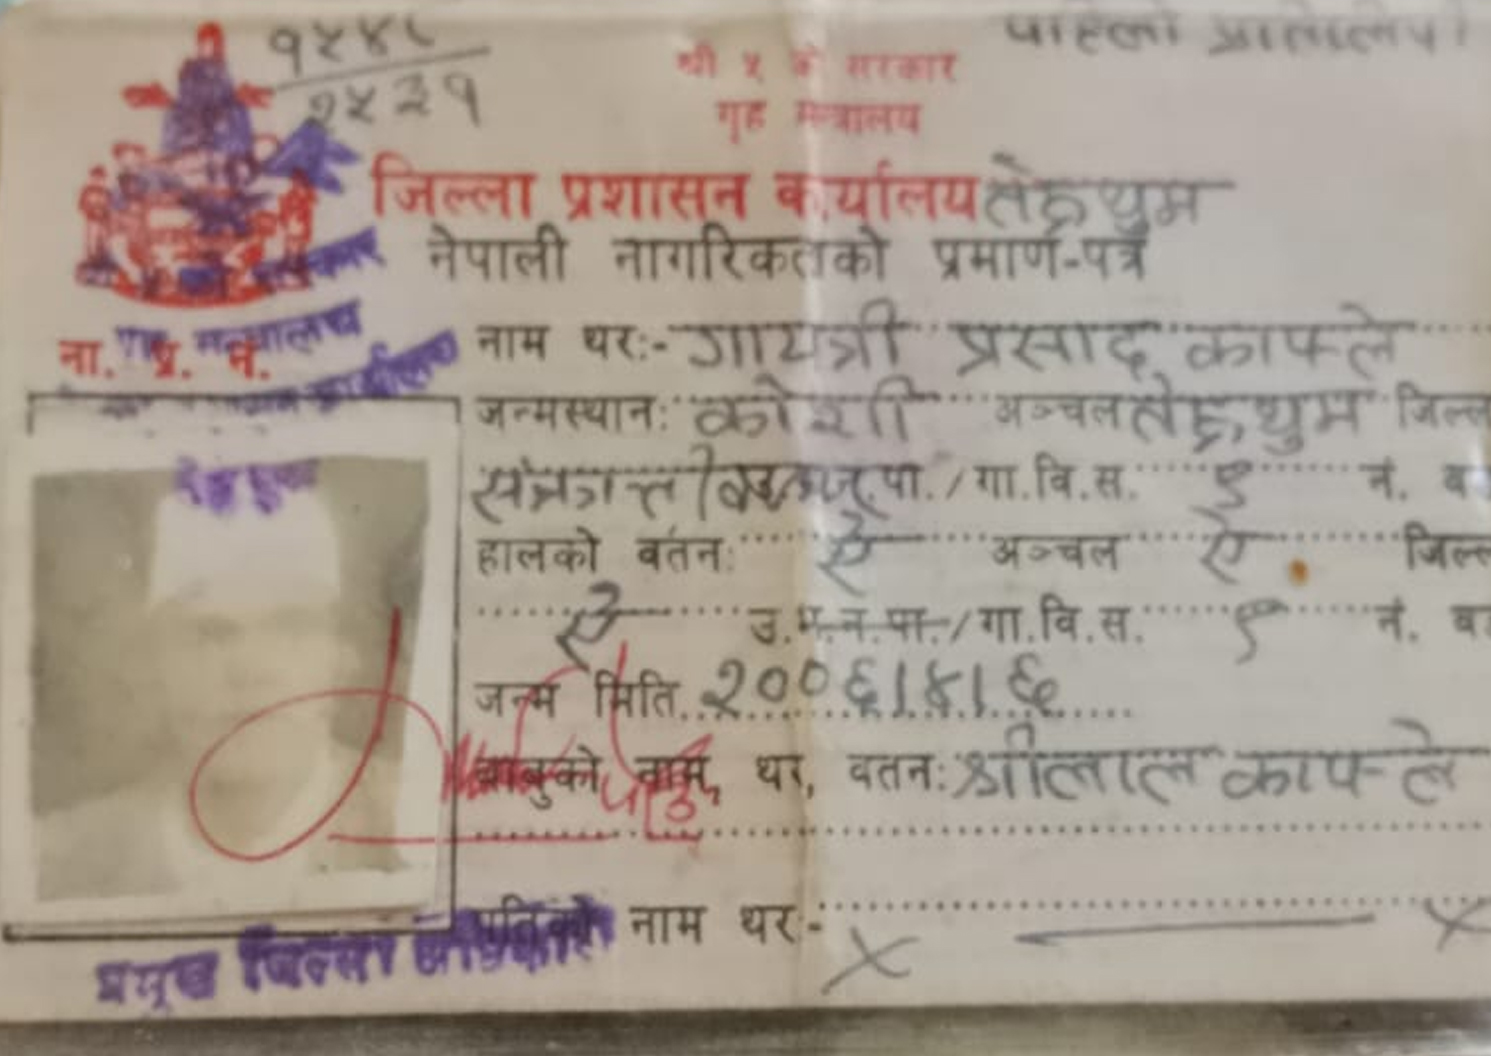 पहिलो प्रतिलिपी
१५४८
२५२१
श्री ५ को सरकार
गृह मन्त्रालय
जिल्ला प्रशासन कार्यालय तेह्रथुम
नेपाली नागरिकताको प्रमाण-पत्र
श्री ५ को सरकार
गृह मन्त्रालय
ना. प्र. नं.
नाम थर:- गायत्री प्रसाद काफ्ले
जन्मस्थान: कोशी अञ्चल तेह्रथुम जिल्ल
पा./गा.वि.स. १ नं. व
हालको वतन: ऐ अञ्चल ऐ जिल्ल
ऐ उ.म.न.पा./गा.वि.स. १ नं. व
जन्म मिति २००६।४।६
बाबुको नाम, थर, वतन: श्रीलाल काफ्ले
पतिको नाम थर:- × ×
प्रमुख जिल्ला अधिकारी